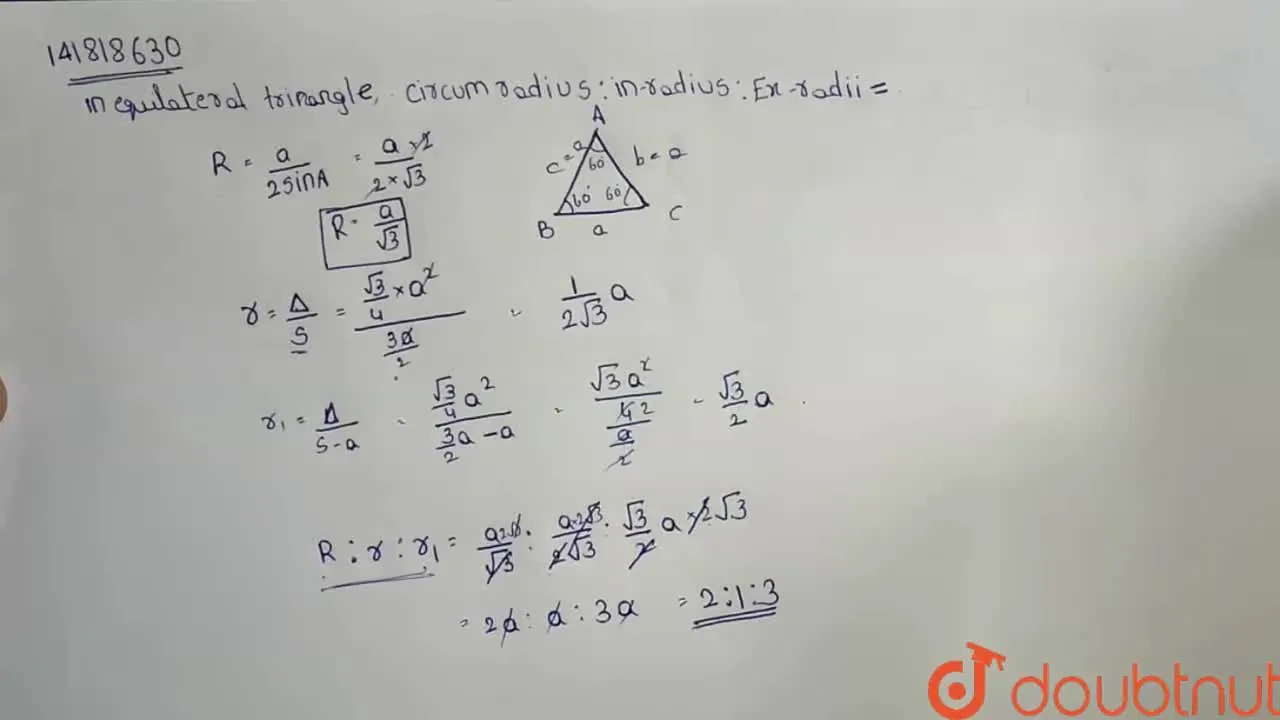 141818630
In equilateral trinangle, circumradius : in-radius : Ex-radii =
R = a/2SinA = a×2/2×√3
R = a/√3
A
c = a
b = a
60°
60° 60°
B a C
r = Δ/S = √3/4 × a²/3a/2 = 1/2√3 a
r₁ = Δ/S-a = √3/4 a²/3/2 a - a = √3 a²/4 2/a/2 = √3/2 a
R : r : r₁ = a2√3/√3 : a·2√3/2√3 : √3/2 a × 2√3
= 2a : a : 3a = 2:1:3
doubtnut